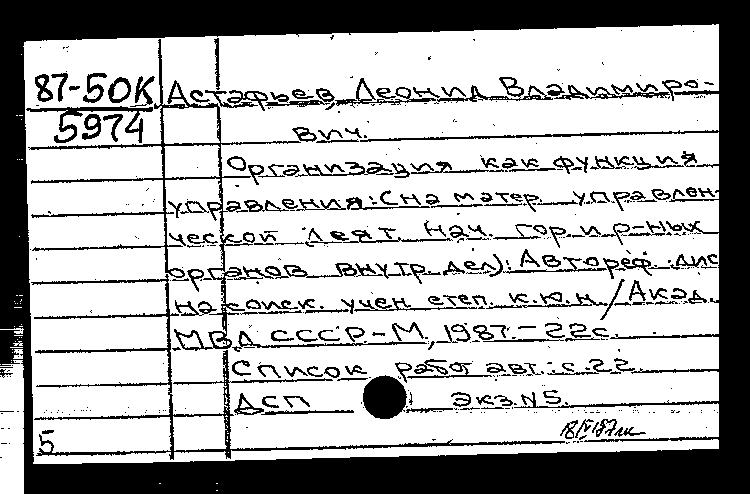 87-50К Астафьев, Леонид Владимиро-
5974 вич.
Организация как функция
управления: (на матер. управлен-
ческой деят. нач. гор. и р-ных
органов внутр. дел): Автореф. дис
на соиск. учен. степ. к.ю.н. / Акад.
МВД СССР - М., 1987. - 22 с.
Список работ авт.: с. 22.
ДСП экз. N5.
5